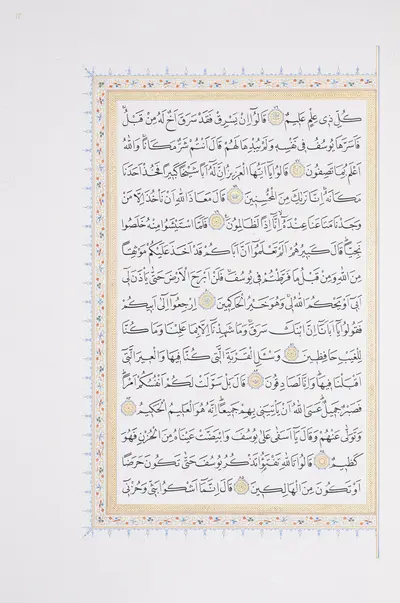 كُلِّ ذِي عِلْمٍ عَلِيمٌ ۝ قَالُوا إِنْ يَسْرِقْ فَقَدْ سَرَقَ أَخٌ لَهُ مِنْ قَبْلُ
فَأَسَرَّهَا يُوسُفُ فِي نَفْسِهِ وَلَمْ يُبْدِهَا لَهُمْ قَالَ أَنْتُمْ شَرٌّ مَكَانًا وَاللّٰهُ
أَعْلَمُ بِمَا تَصِفُونَ ۝ قَالُوا يَا أَيُّهَا الْعَزِيزُ إِنَّ لَهُ أَبًا شَيْخًا كَبِيرًا فَخُذْ أَحَدَنَا
مَكَانَهُ إِنَّا نَرٰيكَ مِنَ الْمُحْسِنِينَ ۝ قَالَ مَعَاذَ اللّٰهِ أَنْ نَأْخُذَ إِلَّا مَنْ
وَجَدْنَا مَتَاعَنَا عِنْدَهُ إِنَّا إِذًا لَظَالِمُونَ ۝ فَلَمَّا اسْتَيْئَسُوا مِنْهُ خَلَصُوا
نَجِيًّا قَالَ كَبِيرُهُمْ أَلَمْ تَعْلَمُوا أَنَّ أَبَاكُمْ قَدْ أَخَذَ عَلَيْكُمْ مَوْثِقًا
مِنَ اللّٰهِ وَمِنْ قَبْلُ مَا فَرَّطْتُمْ فِي يُوسُفَ فَلَنْ أَبْرَحَ الْأَرْضَ حَتّٰى يَأْذَنَ لِي
أَبِي أَوْ يَحْكُمَ اللّٰهُ لِي وَهُوَ خَيْرُ الْحَاكِمِينَ ۝ اِرْجِعُوا إِلٰى أَبِيكُمْ
فَقُولُوا يَا أَبَانَا إِنَّ ابْنَكَ سَرَقَ وَمَا شَهِدْنَا إِلَّا بِمَا عَلِمْنَا وَمَا كُنَّا
لِلْغَيْبِ حَافِظِينَ ۝ وَسْئَلِ الْقَرْيَةَ الَّتِي كُنَّا فِيهَا وَالْعِيرَ الَّتِي
أَقْبَلْنَا فِيهَا وَإِنَّا لَصَادِقُونَ ۝ قَالَ بَلْ سَوَّلَتْ لَكُمْ أَنْفُسُكُمْ أَمْرًا
فَصَبْرٌ جَمِيلٌ عَسَى اللّٰهُ أَنْ يَأْتِيَنِي بِهِمْ جَمِيعًا إِنَّهُ هُوَ الْعَلِيمُ الْحَكِيمُ ۝
وَتَوَلّٰى عَنْهُمْ وَقَالَ يَا أَسَفٰى عَلٰى يُوسُفَ وَابْيَضَّتْ عَيْنَاهُ مِنَ الْحُزْنِ فَهُوَ
كَظِيمٌ ۝ قَالُوا تَاللّٰهِ تَفْتَؤُا تَذْكُرُ يُوسُفَ حَتّٰى تَكُونَ حَرَضًا
أَوْ تَكُونَ مِنَ الْهَالِكِينَ ۝ قَالَ إِنَّمَا أَشْكُوا بَثِّي وَحُزْنِي